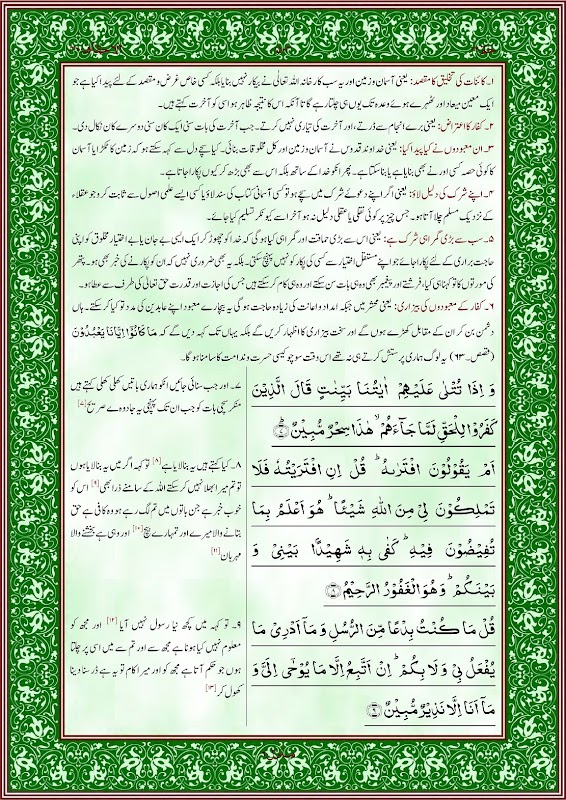 ۱۔ کائنات کی تخلیق کا مقصد: یعنی آسمان و زمین اور یہ سب کارخانہ اللہ تعالٰی نے بیکار نہیں بنایا بلکہ کسی خاص غرض و مقصد کے لئے پیدا کیا ہے جو
ایک معین میعاد اور ٹھہرے ہوئے وعدہ تک یوں ہی چلتا رہے گا تا آنکہ اس کا نتیجہ ظاہر ہو اسی کو آخرت کہتے ہیں۔
۲۔ کفار کا اعتراض: یعنی برے انجام سے ڈرتے، اور آخرت کی تیاری نہیں کرتے۔ جب آخرت کی بات سنی ایک کان سنی دوسرے کان نکال دی۔
۳۔ ان معبودوں نے کیا پیدا کیا: یعنی خداوند قدوس نے آسمان و زمین اور کل مخلوقات بنائی۔ کیا سچے دل سے کہہ سکتے ہو کہ زمین کا ٹکڑا یا آسمان
کا کوئی حصہ کسی اور نے بھی بنایا ہے یا بنا سکتا ہے۔ پھر انکو خدا کے ساتھ بلکہ اس سے بھی بڑھ کر کیوں پکارا جاتا ہے۔
۴۔ اپنے شرک کی دلیل لاؤ: یعنی اگر اپنے دعوائے شرک میں سچے ہو تو کسی آسمانی کتاب کی سند لاؤ یا کسی ایسے علمی اصول سے ثابت کرو جو عقلاء
کے نزدیک مسلم چلا آتا ہو۔ جس چیز پر کوئی نقلی یا عقلی دلیل نہ ہو آخر اسے کیونکر تسلیم کیا جائے۔
۵۔ سب سے بڑی گمراہی شرک ہے: یعنی اس سے بڑی حماقت اور گمراہی کیا ہو گی کہ خدا کو چھوڑ کر ایک ایسی بے جان یا بے اختیار مخلوق کو اپنی
حاجت براری کے لئے پکارا جائے جو اپنے مستقل اختیار سے کسی کی پکار کو نہیں پہنچ سکتی۔ بلکہ یہ بھی ضروری نہیں کہ ان کو پکارنے کی خبر بھی ہو۔ پتھر کی
مورتوں کا تو کہنا ہی کیا، فرشتے اور پیغمبر بھی وہ ہی بات سن سکتے اور وہ ہی کام کر سکتے ہیں جس کی اجازت اور قدرت حق تعالٰی کی طرف سے عطا ہو۔
۶۔ کفار کے معبودوں کی بیزاری: یعنی محشر میں جبکہ امداد و اعانت کی زیادہ حاجت ہو گی یہ بیچارے معبود اپنے عابدین کی مدد تو کیا کر سکتے۔ ہاں
دشمن بن کر ان کے مقابل کھڑے ہوں گے اور سخت بیزاری کا اظہار کریں گے بلکہ یہاں تک کہہ دیں گے کہ مَا كَانُوْۤا اِيَّانَا يَعْبُدُوْنَ
(قصص۔۶۳) یہ لوگ ہماری پرستش کرتے ہی نہ تھے اس وقت سوچو کیسی حسرت و ندامت کا سامنا ہو گا۔
وَ اِذَا تُتْلٰى عَلَيْهِمْ اٰيٰتُنَا بَيِّنٰتٍ قَالَ الَّذِيْنَ
كَفَرُوْا لِلْحَقِّ لَمَّا جَآءَهُمْ ۙ هٰذَا سِحْرٌ مُّبِيْنٌ ؕ﴿۷﴾
۷۔ اور جب سنائی جائیں انکو ہماری باتیں کھلی کھلی کہتے ہیں
منکر سچی بات کو جب ان تک پہنچی یہ جادو ہے صریح [۷]
اَمْ يَقُوْلُوْنَ افْتَرٰىهُ ؕ قُلْ اِنِ افْتَرَيْتُهٗ فَلَا
تَمْلِكُوْنَ لِيْ مِنَ اللّٰهِ شَيْـًٔا ؕ هُوَ اَعْلَمُ بِمَا
تُفِيْضُوْنَ فِيْهِ ؕ كَفٰى بِهٖ شَهِيْدًۢا بَيْنِيْ وَ
بَيْنَكُمْ ؕ وَ هُوَ الْغَفُوْرُ الرَّحِيْمُ ﴿۸﴾
۸۔ کیا کہتے ہیں یہ بنا لایا ہے [۸] تو کہہ اگر میں یہ بنا لایا ہوں
تو تم میرا بھلا نہیں کر سکتے اللہ کے سامنے ذرا بھی [۹] اس کو
خوب خبر ہے جن باتوں میں تم لگ رہے ہو وہ کافی ہے حق
بتانے والا میرے اور تمہارے بیچ [۱۰] اور وہی ہے بخشنے والا
مہربان [۱۱]
قُلْ مَا كُنْتُ بِدْعًا مِّنَ الرُّسُلِ وَ مَاۤ اَدْرِيْ مَا
يُفْعَلُ بِيْ وَ لَا بِكُمْ ؕ اِنْ اَتَّبِعُ اِلَّا مَا يُوْحٰۤى اِلَيَّ وَ
مَاۤ اَنَا اِلَّا نَذِيْرٌ مُّبِيْنٌ ﴿۹﴾
۹۔ تو کہہ میں کچھ نیا رسول نہیں آیا [۱۲] اور مجھ کو
معلوم نہیں کیا ہونا ہے مجھ سے اور تم سے میں اسی پر چلتا
ہوں جو حکم آتا ہے مجھ کو اور میرا کام تو یہ ہے ڈر سنا دینا
کھول کر [۱۳]